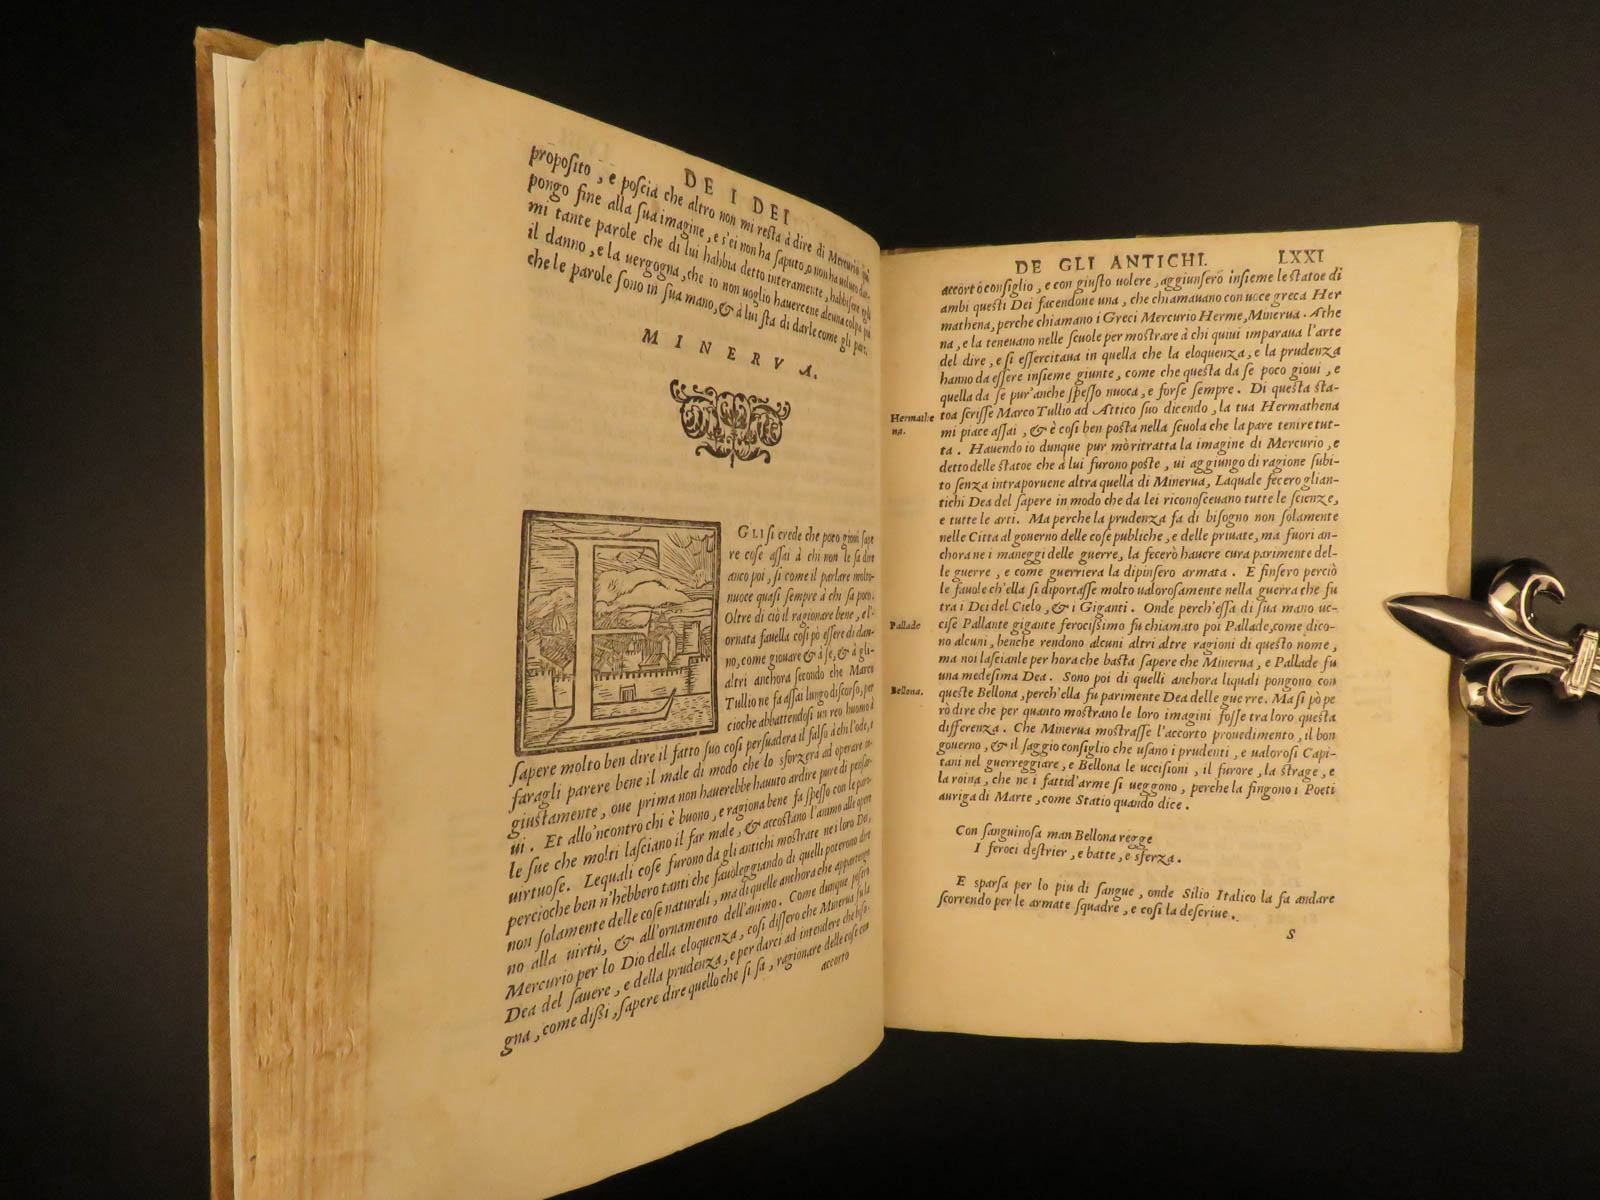 DE I DEI
proposito, e poscia che altro non mi resta à dire di Mercurio
pongo fine alla sua imagine, e s'ei non ha saputo, o non ha uoluto dar-
mi tante parole che di lui habbia detto interamente, habbisene egli
il danno, e la uergogna, che io non uoglio hauercene alcuna colpa
che le parole sono in sua mano, & à lui sta di darle come gli pare.
MINERVA.
E GLI si crede che poco gioui sape
re cose assai à chi non le sa dire
anco poi, si come il parlare molto
nuoce quasi sempre à chi sa poco.
Oltre di ciò il ragionare bene, e l'
ornata fauella cosi pò essere di dan-
no, come giouare & à se, & à gli
altri anchora secondo che Marco
Tullio ne fa assai lungo discorso, per
cioche abbattendosi un reo huomo à
sapere molto ben dire il fatto suo cosi persuadera il falso à chi l'ode, e
faragli parere bene il male di modo che lo sforzerà ad operare in-
giustamente, oue prima non hauerebbe hauuto ardire pure di pensar-
ui. Et allo'ncontro chi è buono, e ragiona bene fa spesso con le paro-
le sue che molti lasciano il far male, & accostano l'animo alle opere
uirtuose. Lequali cose furono da gli antichi mostrate ne i loro Dei,
percioche ben n'hebbero tanti che fauoleggiando di quelli poterono dire
non solamente delle cose naturali, ma di quelle anchora che appartengo
no alla uirtù, & all'ornamento dell'animo. Come dunque posero
Mercurio per lo Dio della eloquenza, cosi dissero che Minerua fu la
Dea del sauere, e della prudenza, e per darci ad intendere che biso-
gna, come dissi, sapere dire quello che si sa, ragionare delle cose con
accorto
DE GLI ANTICHI. LXXI
accorto consiglio, e con giusto uolere, aggiunsero insieme le statoe di
ambi questi Dei facendone una, che chiamauano con uoce greca Her
mathena, perche chiamano i Greci Mercurio Herme, Minerua. Athe
na, e la teneuano nelle scuole per mostrare à chi quiui imparaua l'arte
del dire, e si essercitaua in quella che la eloquenza, e la prudenza
hanno da essere insieme giunte, come che questa da se poco gioui, e
quella da se pur'anche spesso nuoca, e forse sempre. Di questa sta-
Hermathe
na.
toa scrisse Marco Tullio ad Attico suo dicendo, la tua Hermathena
mi piace assai, & è cosi ben posta nella scuola che la pare tenire tut-
ta. Hauendo io dunque pur mò ritratta la imagine di Mercurio, e
detto delle statoe che à lui furono poste, ui aggiungo di ragione subi-
to senza intraporuene altra quella di Minerua, Laquale fecero gli an-
tichi Dea del sapere in modo che da lei riconosceuano tutte le scienze,
e tutte le arti. Ma perche la prudenza fa di bisogno non solamente
nelle Citta al gouerno delle cose publiche, e delle priuate, ma fuori an-
chora ne i maneggi delle guerre, la fecerò hauere cura parimente del-
le guerre, e come guerriera la dipinsero armata. E finsero perciò
le fauole ch'ella si diportasse molto ualorosamente nella guerra che fu
tra i Dei del Cielo, & i Giganti. Onde perch'essa di sua mano uc-
Pallade
cise Pallante gigante ferocissimo fu chiamato poi Pallade, come dico-
no alcuni, benche rendono alcuni altri altre ragioni di questo nome,
ma noi lascianle per hora che basta sapere che Minerua, e Pallade fu
una medesima Dea. Sono poi di quelli anchora liquali pongono con
Bellona.
queste Bellona, perch'ella fu parimente Dea delle guerre. Ma si pò pe
rò dire che per quanto mostrano le loro imagini fosse tra loro questa
differenza. Che Minerua mostrasse l'accorto prouedimento, il bon
gouerno, & il saggio consiglio che usano i prudenti, e ualorosi Capi-
tani nel guerreggiare, e Bellona le uccisioni, il furore, la strage, e
la roina, che ne i fatti d'arme si ueggono, perche la fingono i Poeti
auriga di Marte, come Statio quando dice.
Con sanguinosa man Bellona regge
I feroci destrier, e batte, e sferza.
E sparsa per lo piu di sangue, onde Silio Italico la fa andare
scorrendo per le armate squadre, e cosi la descriue.
S